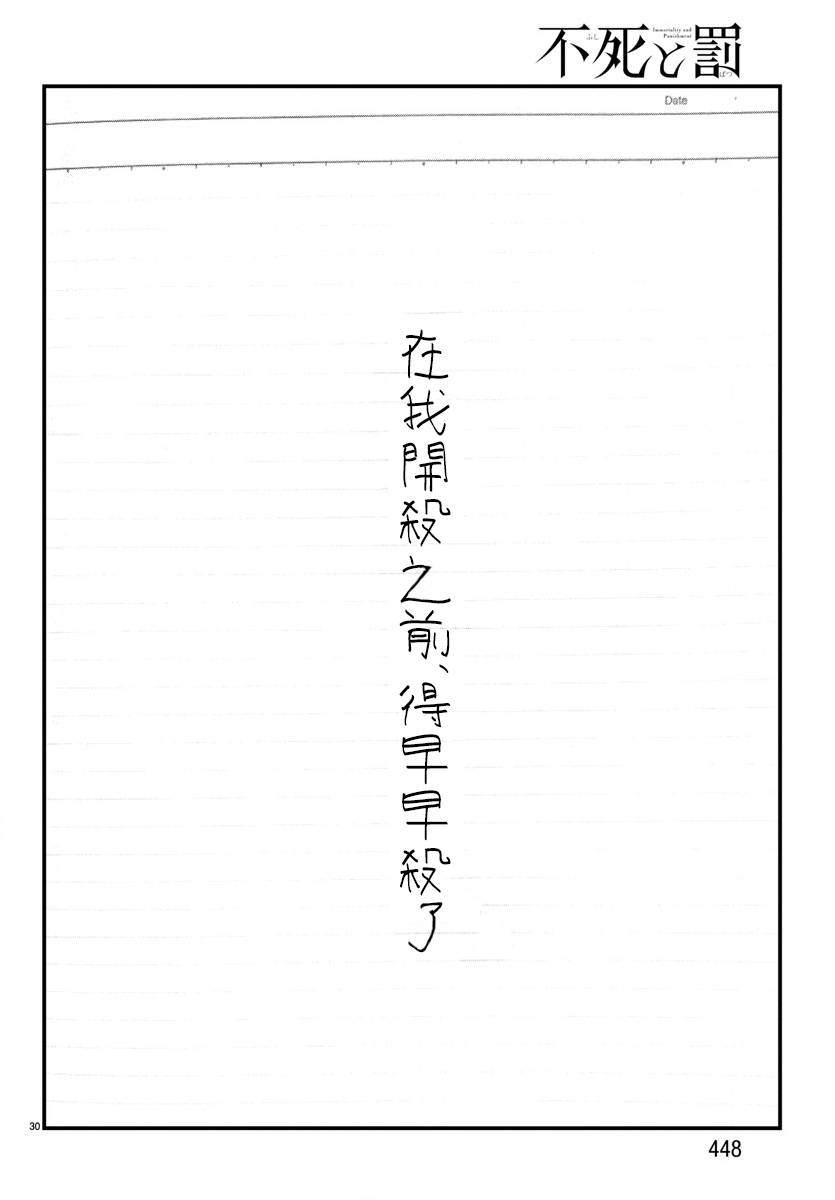 Immortality and
Punishment
不死と罰
ふし
ばつ
Date
在我開殺之前、得早早殺了
30
448